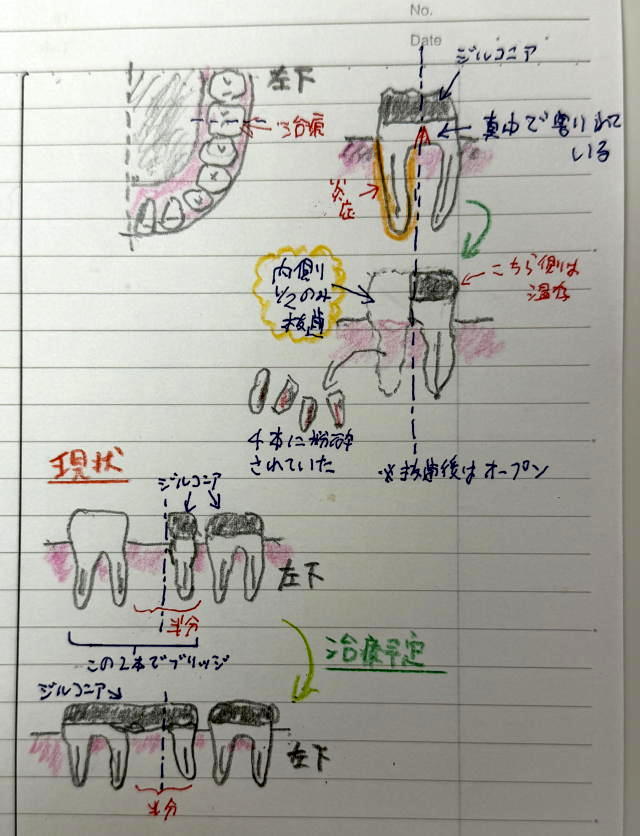 No.
Date
左下
治療
ジルコニア
真中で割れて
いる
炎
症
内側
1/2のみ
抜歯
こちら側は
温存
4本に粉砕
されていた
※抜歯後はオープン
現状
ジルコニア
左下
半分
この2本でブリッジ
治療予定
ジルコニア
左下
半分